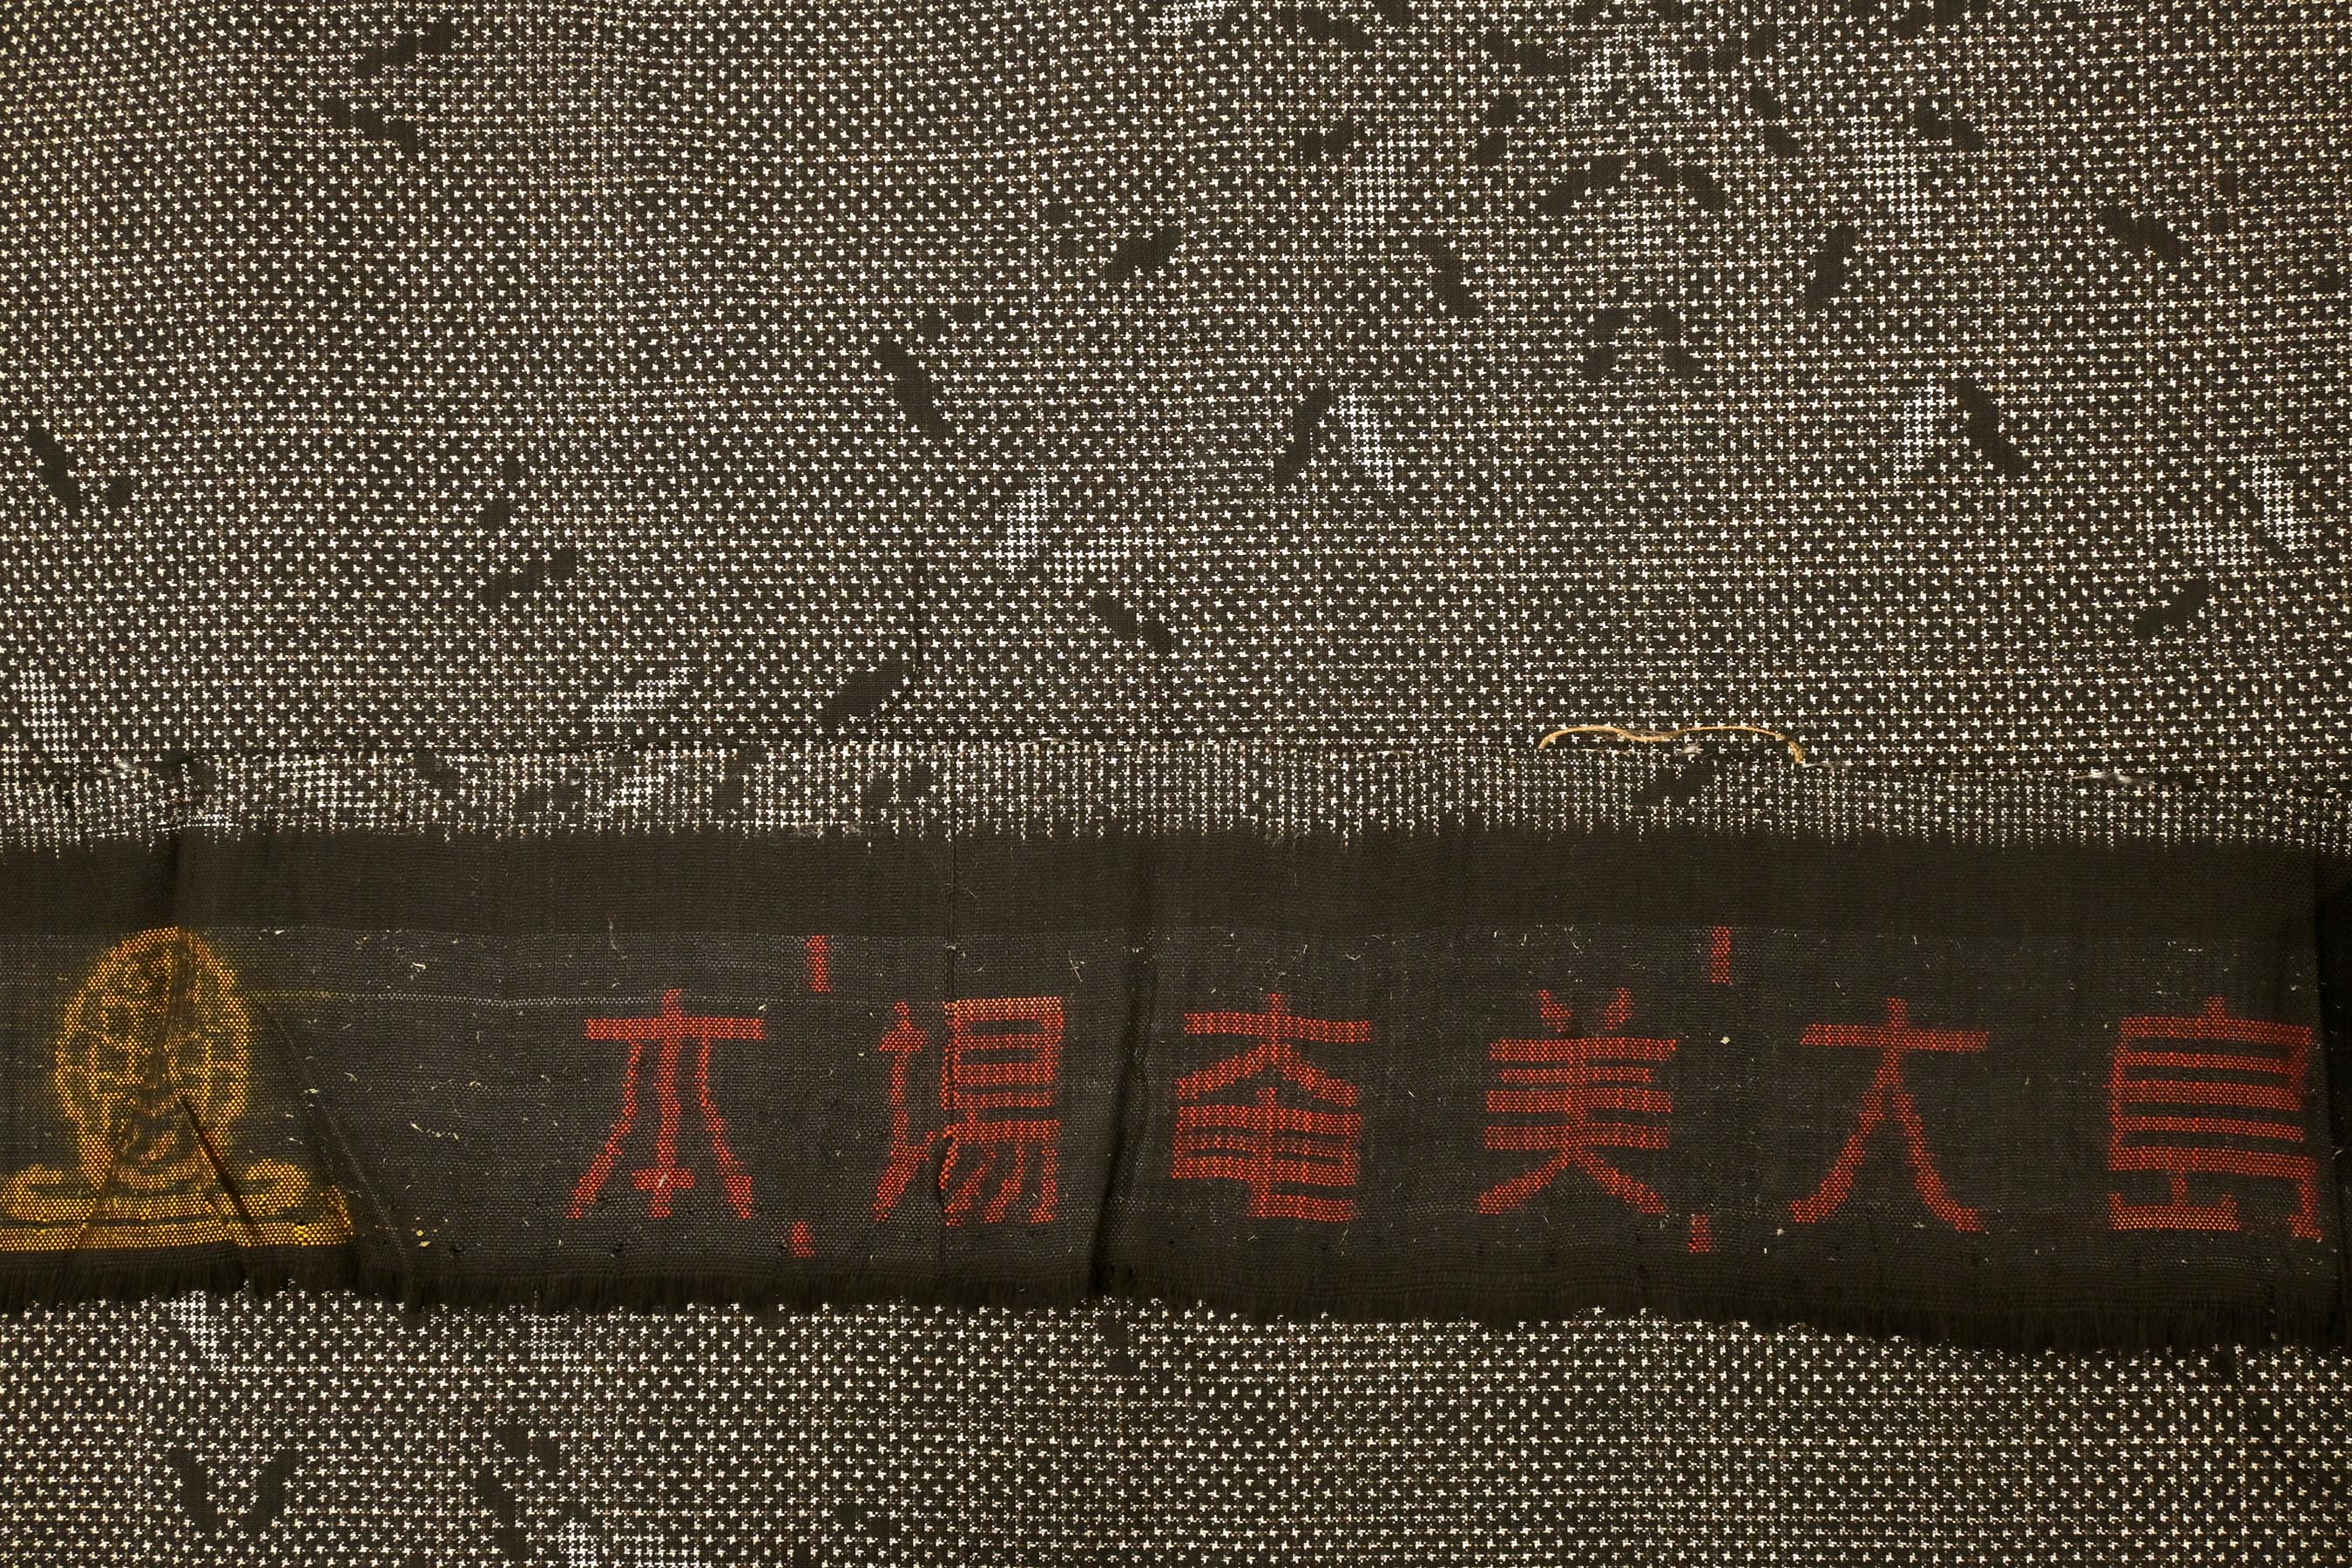 本場奄美大島